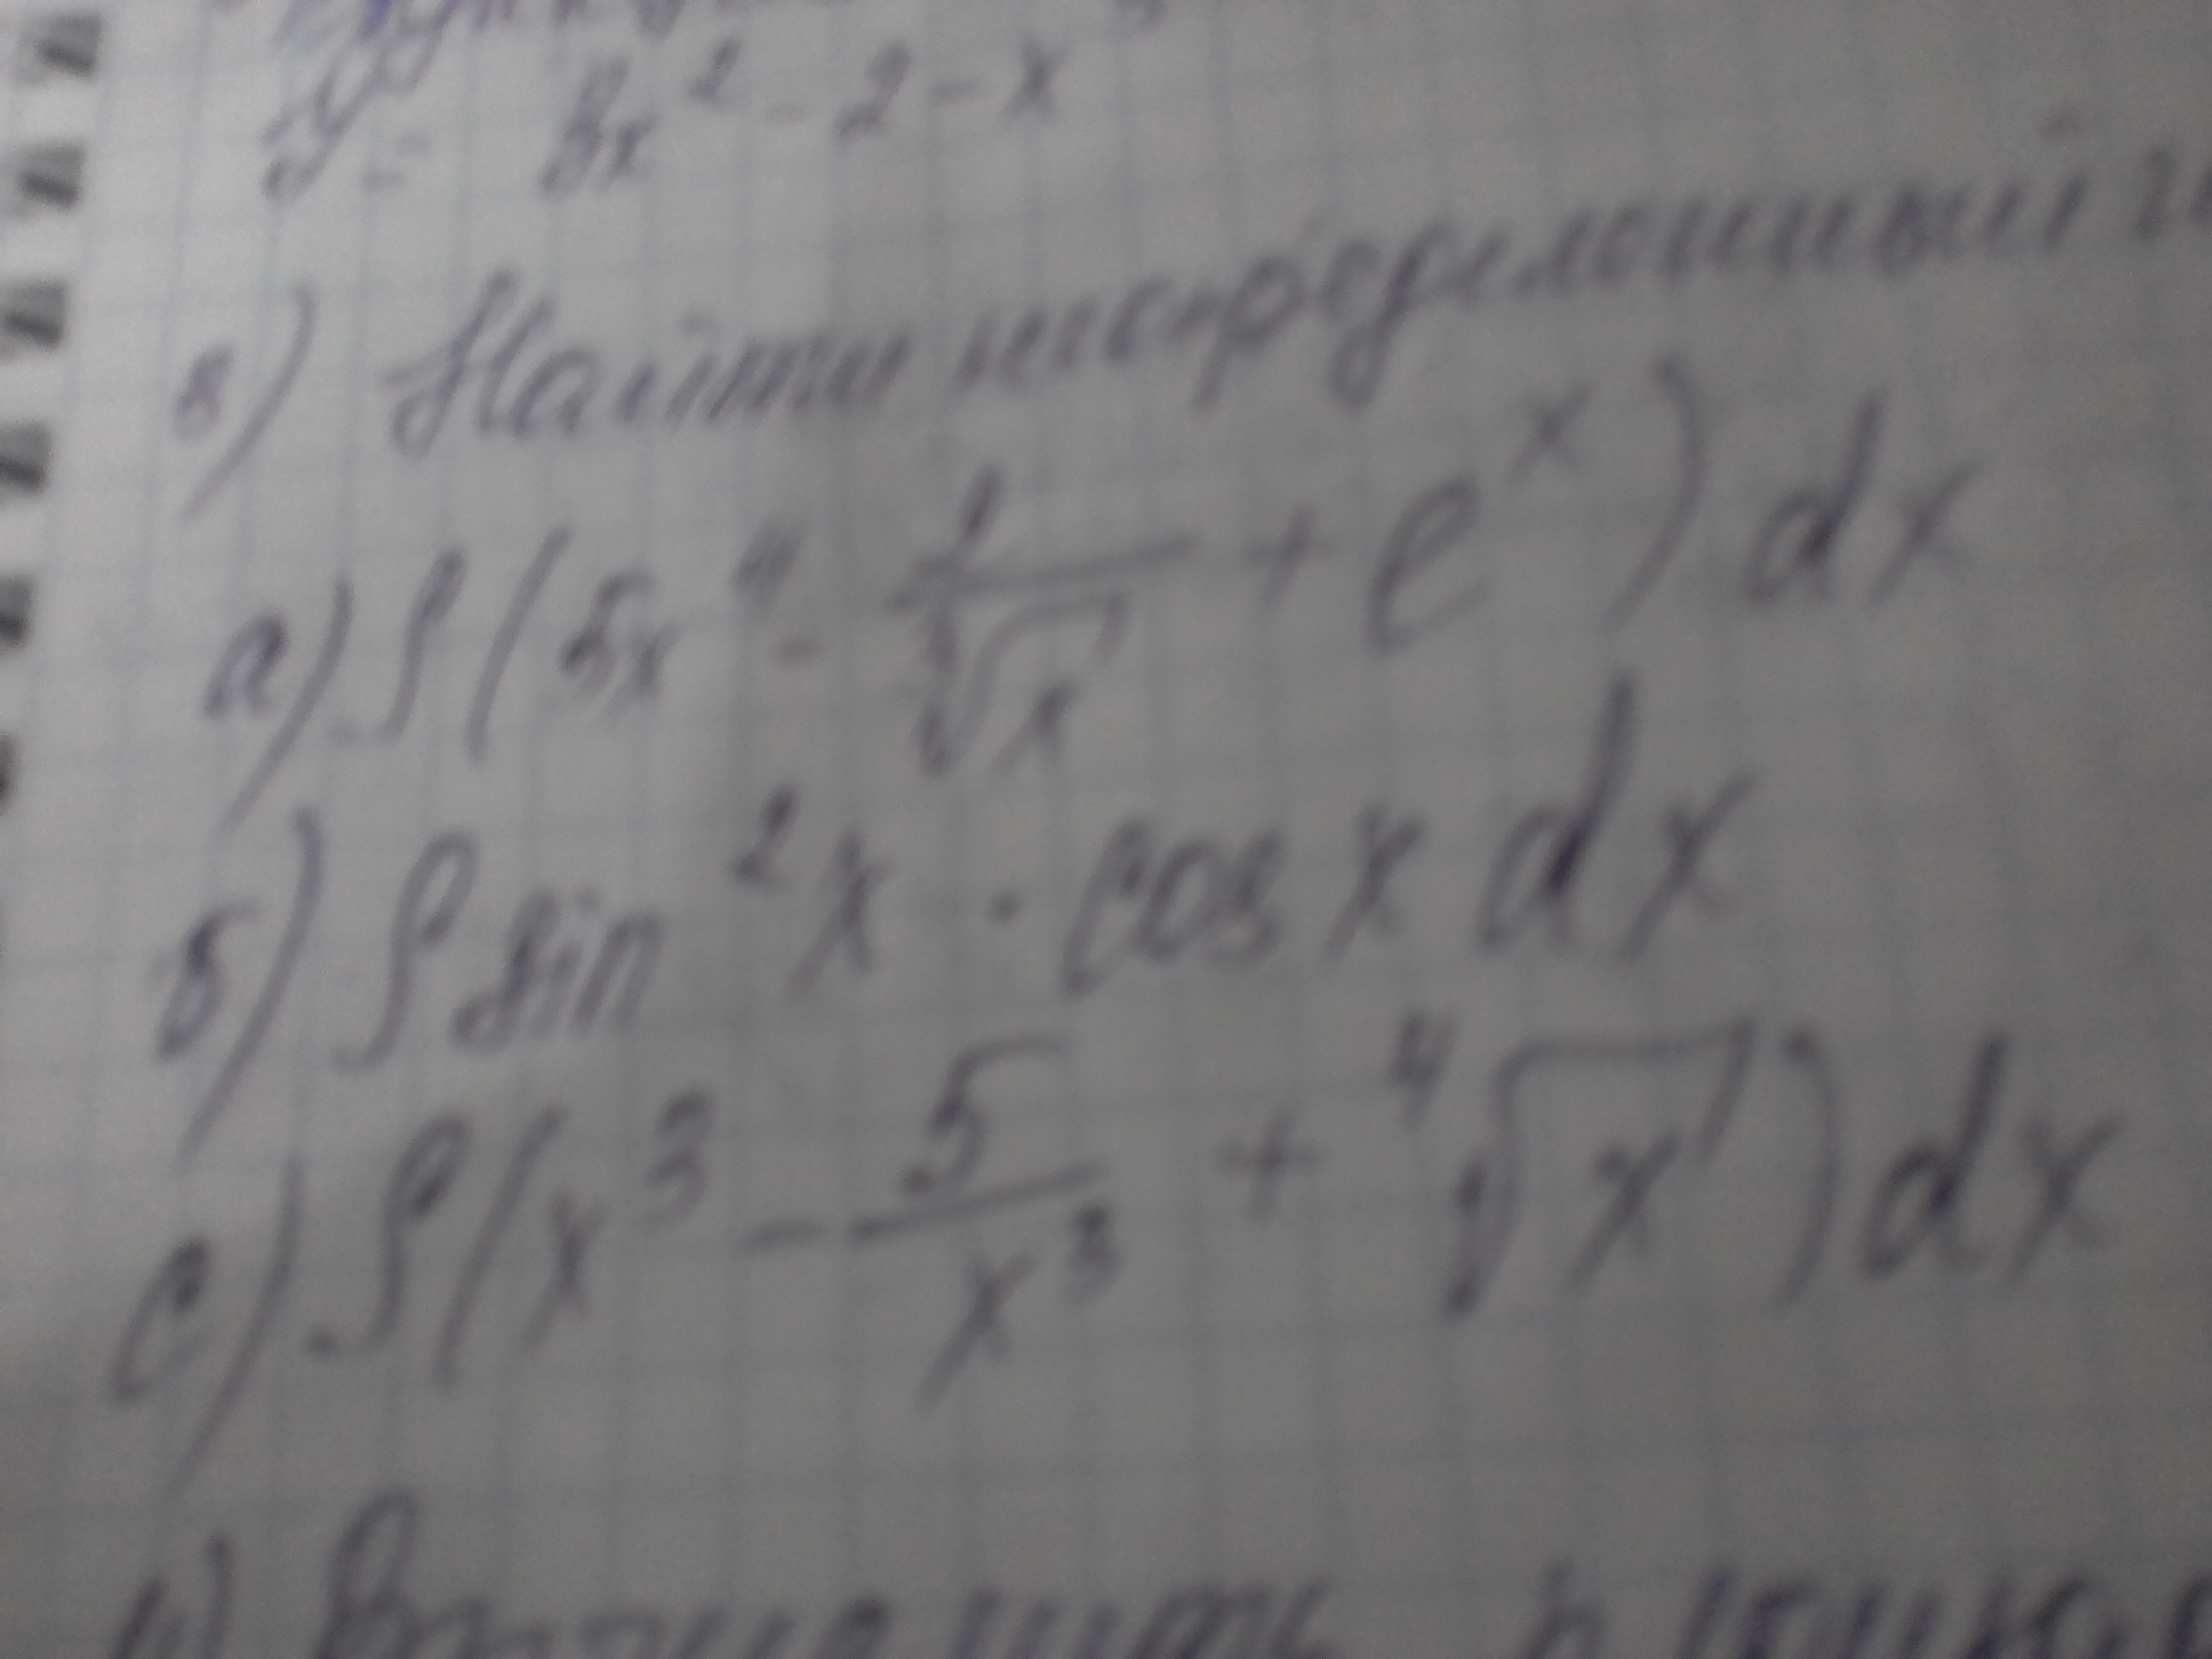 y = 3x² - 2 - x³
в) Найти неопределенный
а) ∫(5x⁴ - 1/√x + eˣ) dx
б) ∫ sin²x · cos x dx
с) ∫(x³ - 5/x³ + ⁴√x) dx